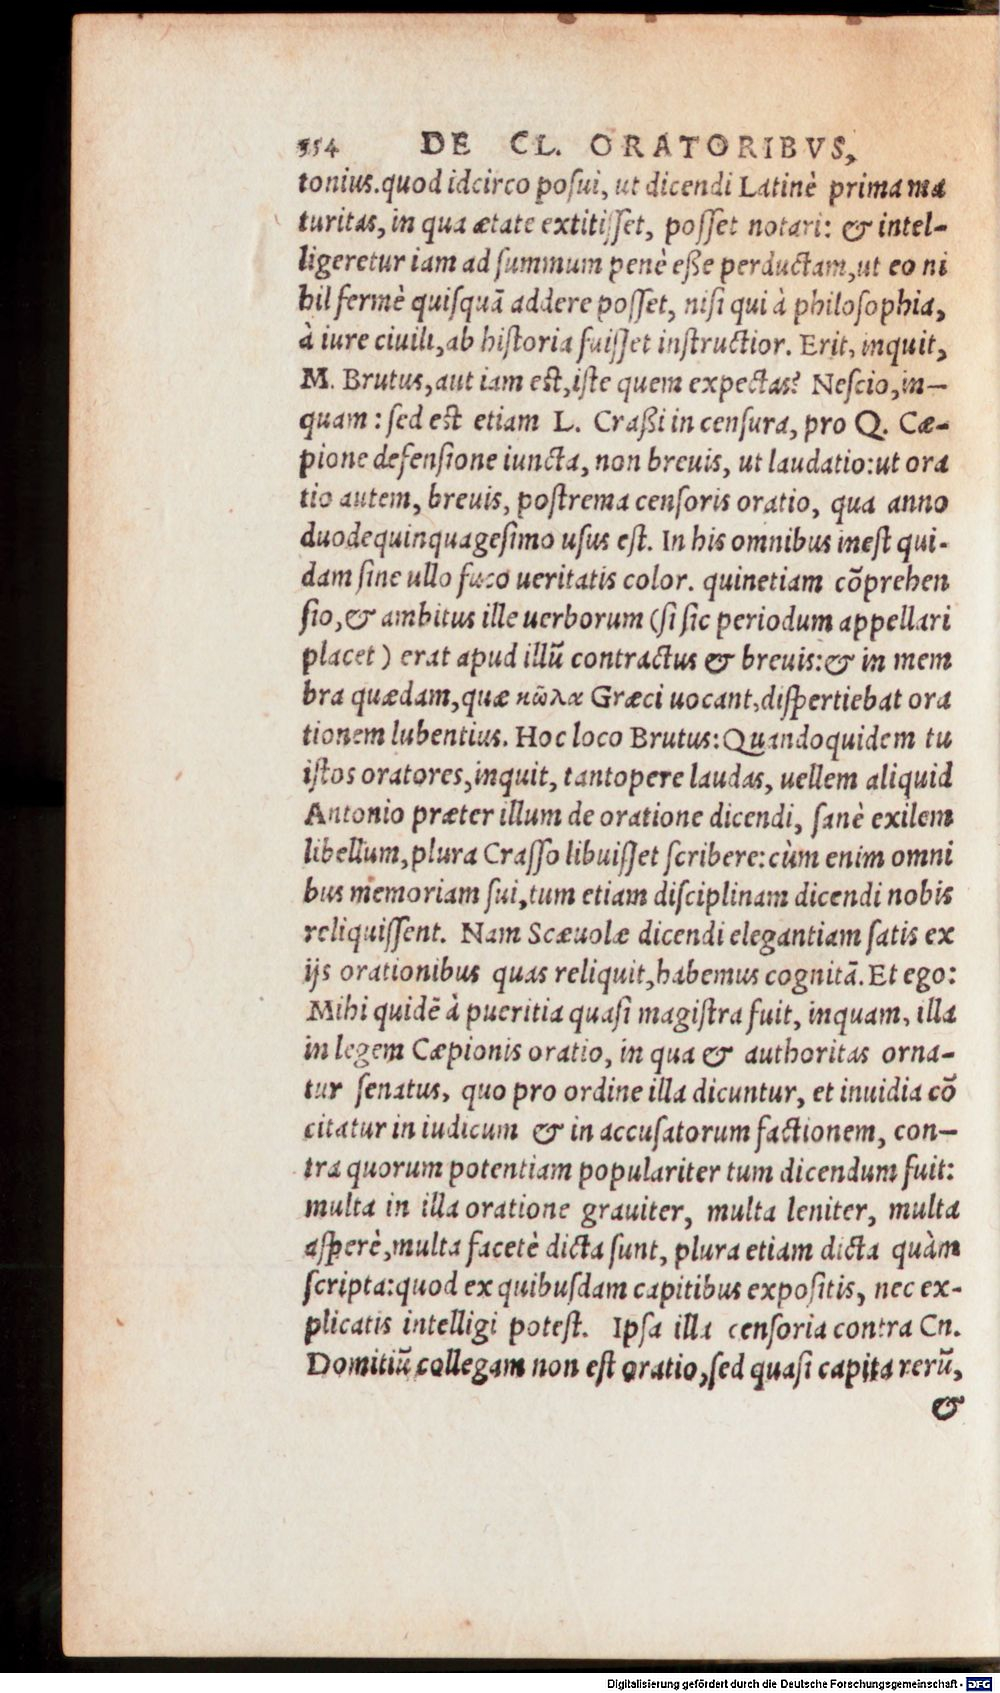 554 DE CL. ORATORIBVS,
tonius.quod idcirco posui, ut dicendi Latinè prima ma
turitas, in qua ætate extitisset, posset notari: & intel-
ligeretur iam ad summum penè eße perductam,ut eo ni
hil fermè quisquā addere posset, nisi qui à philosophia,
à iure ciuili,ab historia fuisset instructior. Erit, inquit,
M. Brutus,aut iam est,iste quem expectas? Nescio,in-
quam : sed est etiam L. Craßi in censura, pro Q. Cæ-
pione defensione iuncta, non breuis, ut laudatio:ut ora
tio autem, breuis, postrema censoris oratio, qua anno
duodequinquagesimo usus est. In his omnibus inest qui-
dam sine ullo fuco ueritatis color. quinetiam cōprehen
sio,& ambitus ille uerborum (si sic periodum appellari
placet ) erat apud illū contractus & breuis:& in mem
bra quædam,quæ κῶλα Græci uocant,dispertiebat ora
tionem lubentius. Hoc loco Brutus:Quandoquidem tu
istos oratores,inquit, tantopere laudas, uellem aliquid
Antonio præter illum de oratione dicendi, sanè exilem
libellum,plura Crasso libuisset scribere:cùm enim omni
bus memoriam sui,tum etiam disciplinam dicendi nobis
reliquissent. Nam Scæuolæ dicendi elegantiam satis ex
ijs orationibus quas reliquit,habemus cognitā. Et ego:
Mihi quidē à pueritia quasi magistra fuit, inquam, illa
in legem Cæpionis oratio, in qua & authoritas orna-
tur senatus, quo pro ordine illa dicuntur, et inuidia cō
citatur in iudicum & in accusatorum factionem, con-
tra quorum potentiam populariter tum dicendum fuit:
multa in illa oratione grauiter, multa leniter, multa
asperè,multa facetè dicta sunt, plura etiam dicta quàm
scripta:quod ex quibusdam capitibus expositis, nec ex-
plicatis intelligi potest. Ipsa illa censoria contra Cn.
Domitiū collegam non est oratio,sed quasi capita rerū,
&
Digitalisierung gefördert durch die Deutsche Forschungsgemeinschaft - DFG